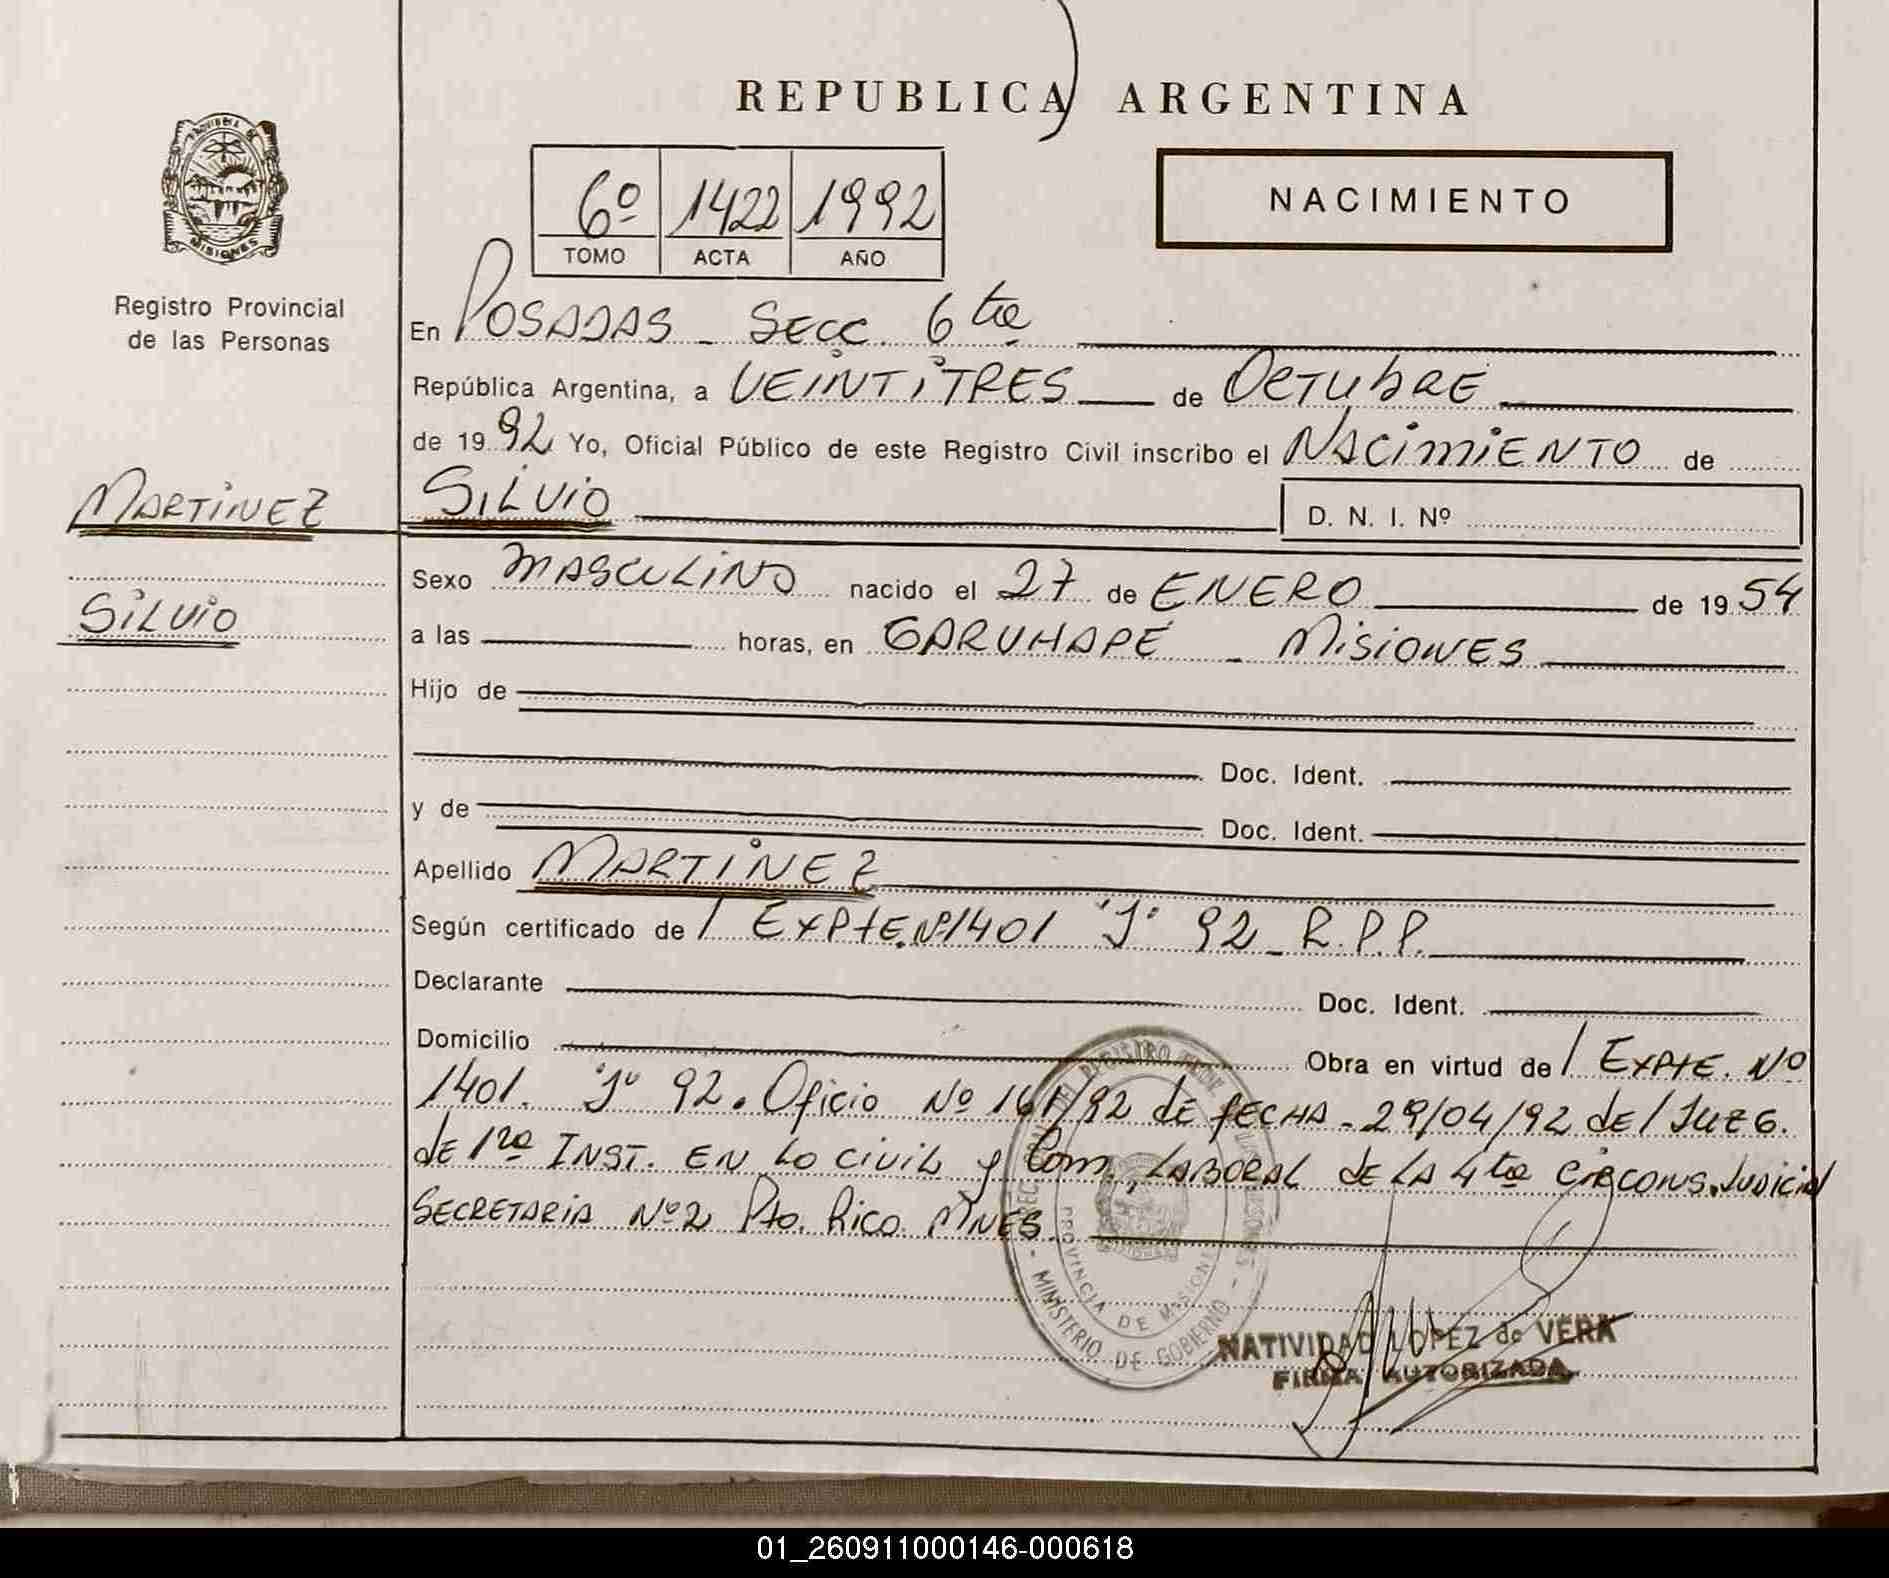 REPUBLICA ARGENTINA
PROVINCIA DE
MISIONES
Registro Provincial
de las Personas
6º 1422 1992
TOMO ACTA AÑO
NACIMIENTO
En POSADAS - SECC. 6ta
República Argentina, a VEINTITRES de OCTUBRE
de 1992 Yo, Oficial Público de este Registro Civil inscribo el NACIMIENTO de
MARTINEZ
SILVIO
SILVIO D. N. I. Nº
Sexo MASCULINO nacido el 27 de ENERO de 1954
a las horas, en GARUHAPÉ - MISIONES
Hijo de
Doc. Ident.
y de Doc. Ident.
Apellido MARTINEZ
Según certificado de / EXPTE. Nº 1401 "J" 92 - R.P.P.
Declarante Doc. Ident.
Domicilio Obra en virtud de / EXPTE. Nº
1401. "J" 92. Oficio Nº 161/92 de FECHA - 29/04/92 de / JUZG.
de 1ra INST. EN LO CIVIL y Com., LABORAL DE LA 4ta CIRCONS. JUDICIAL
SECRETARIA Nº 2 Pto. Rico. MNES.
PROVINCIA DE MISIONES
MINISTERIO DE GOBIERNO
NATIVIDAD LOPEZ de VERA
FIRMA AUTORIZADA
01_260911000146-000618